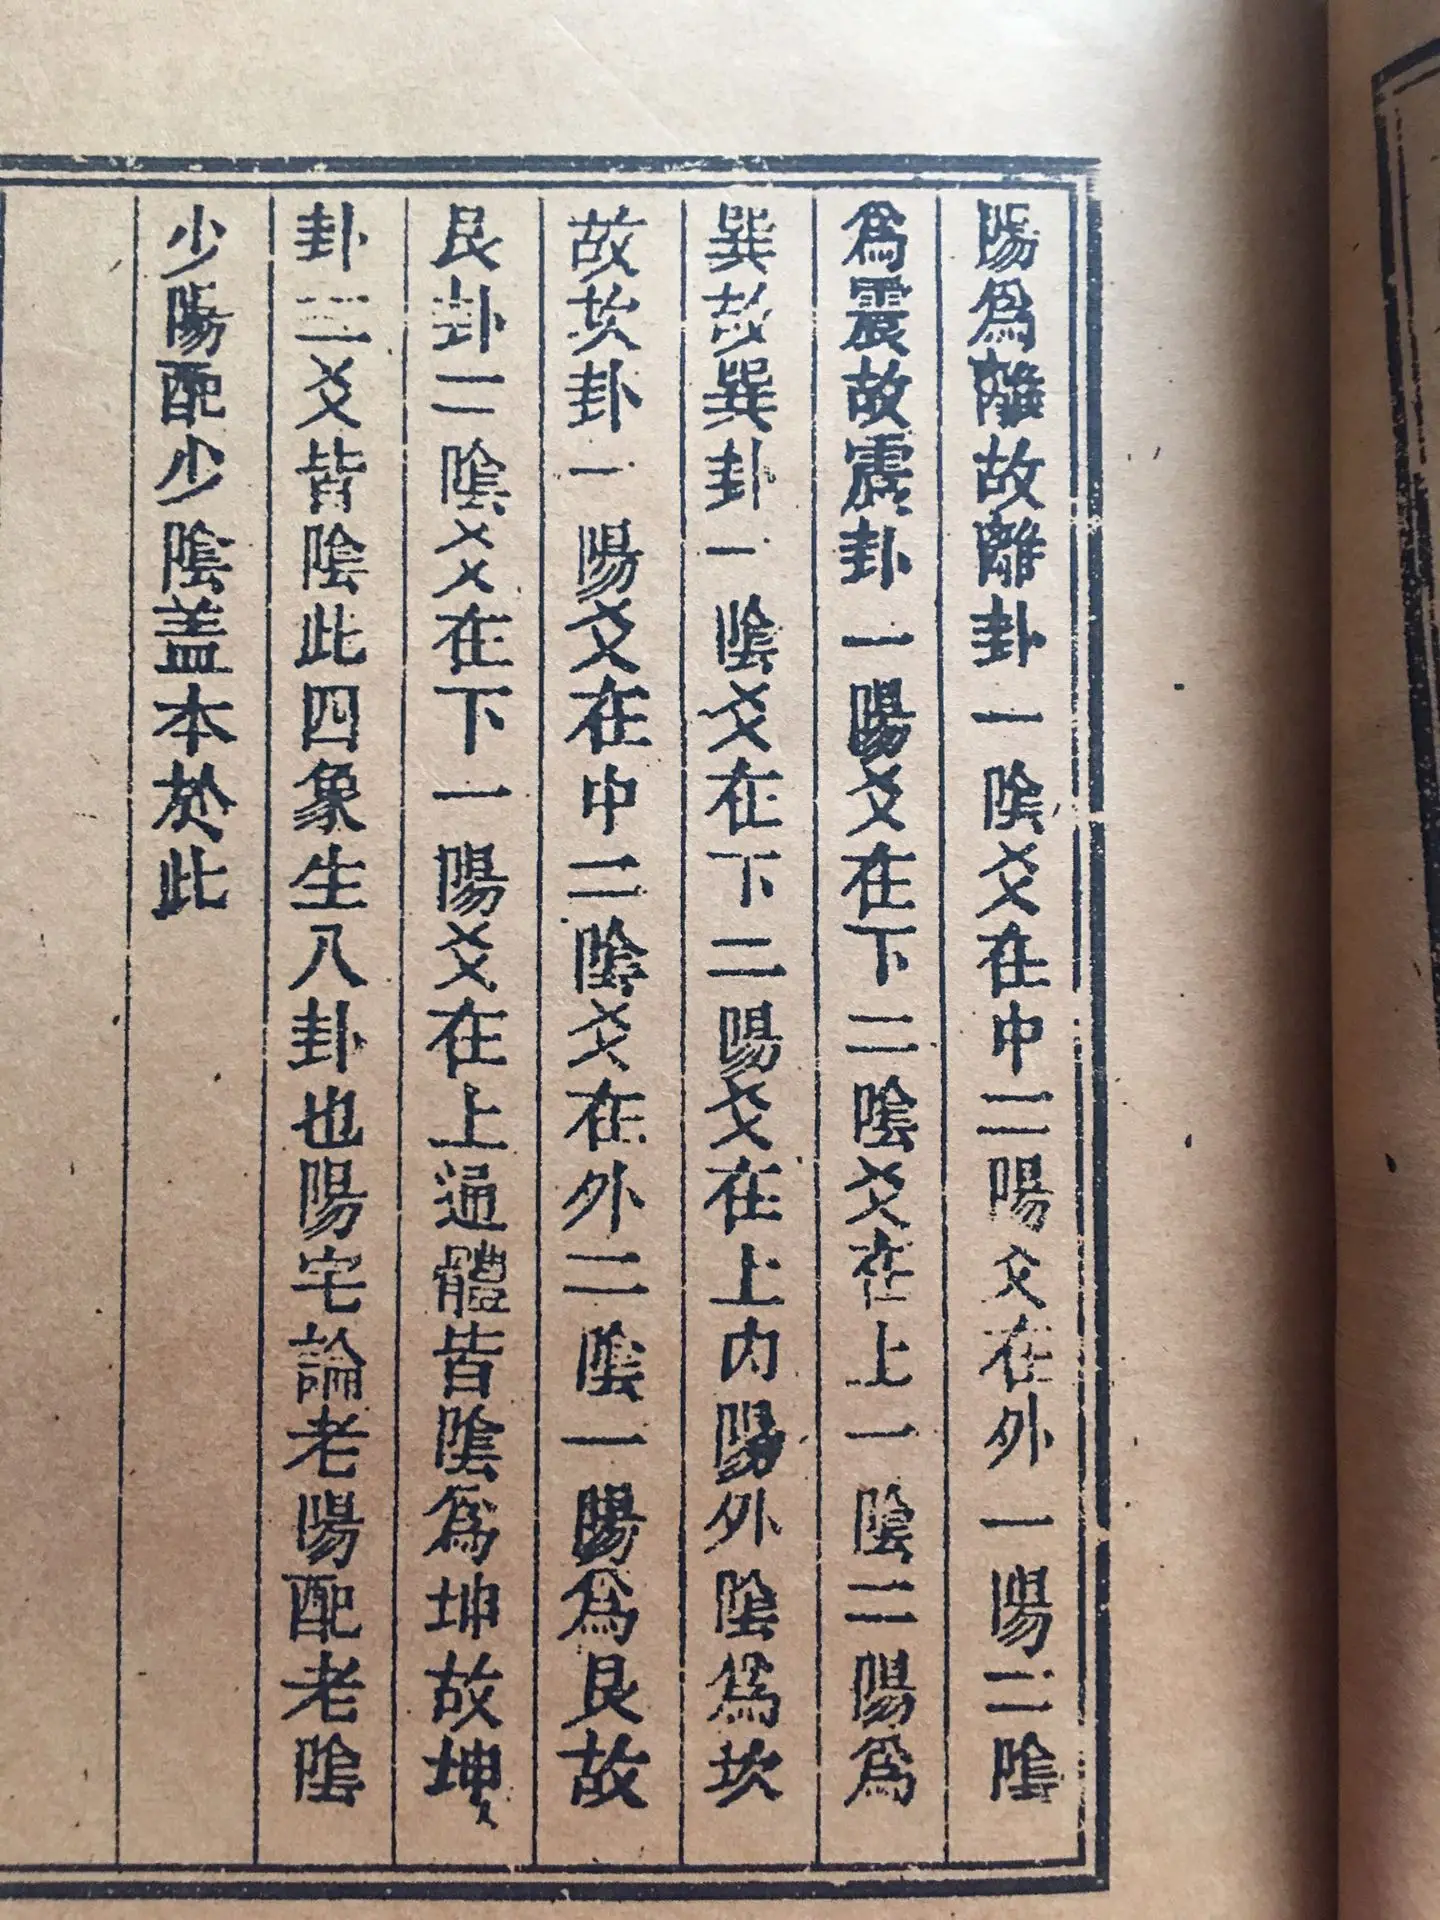 陽爲離故離卦一陰爻在中二陽爻在外一陽二陰
爲震故震卦一陽爻在下二陰爻在上一陰二陽爲
巽故巽卦一陰爻在下二陽爻在上内陽外陰爲坎
故坎卦一陽爻在中二陰爻在外二陰一陽爲艮故
艮卦二陰爻在下一陽爻在上通體皆陰爲坤故坤
卦三爻皆陰此四象生八卦也陽宅論老陽配老陰
少陽配少陰盖本於此